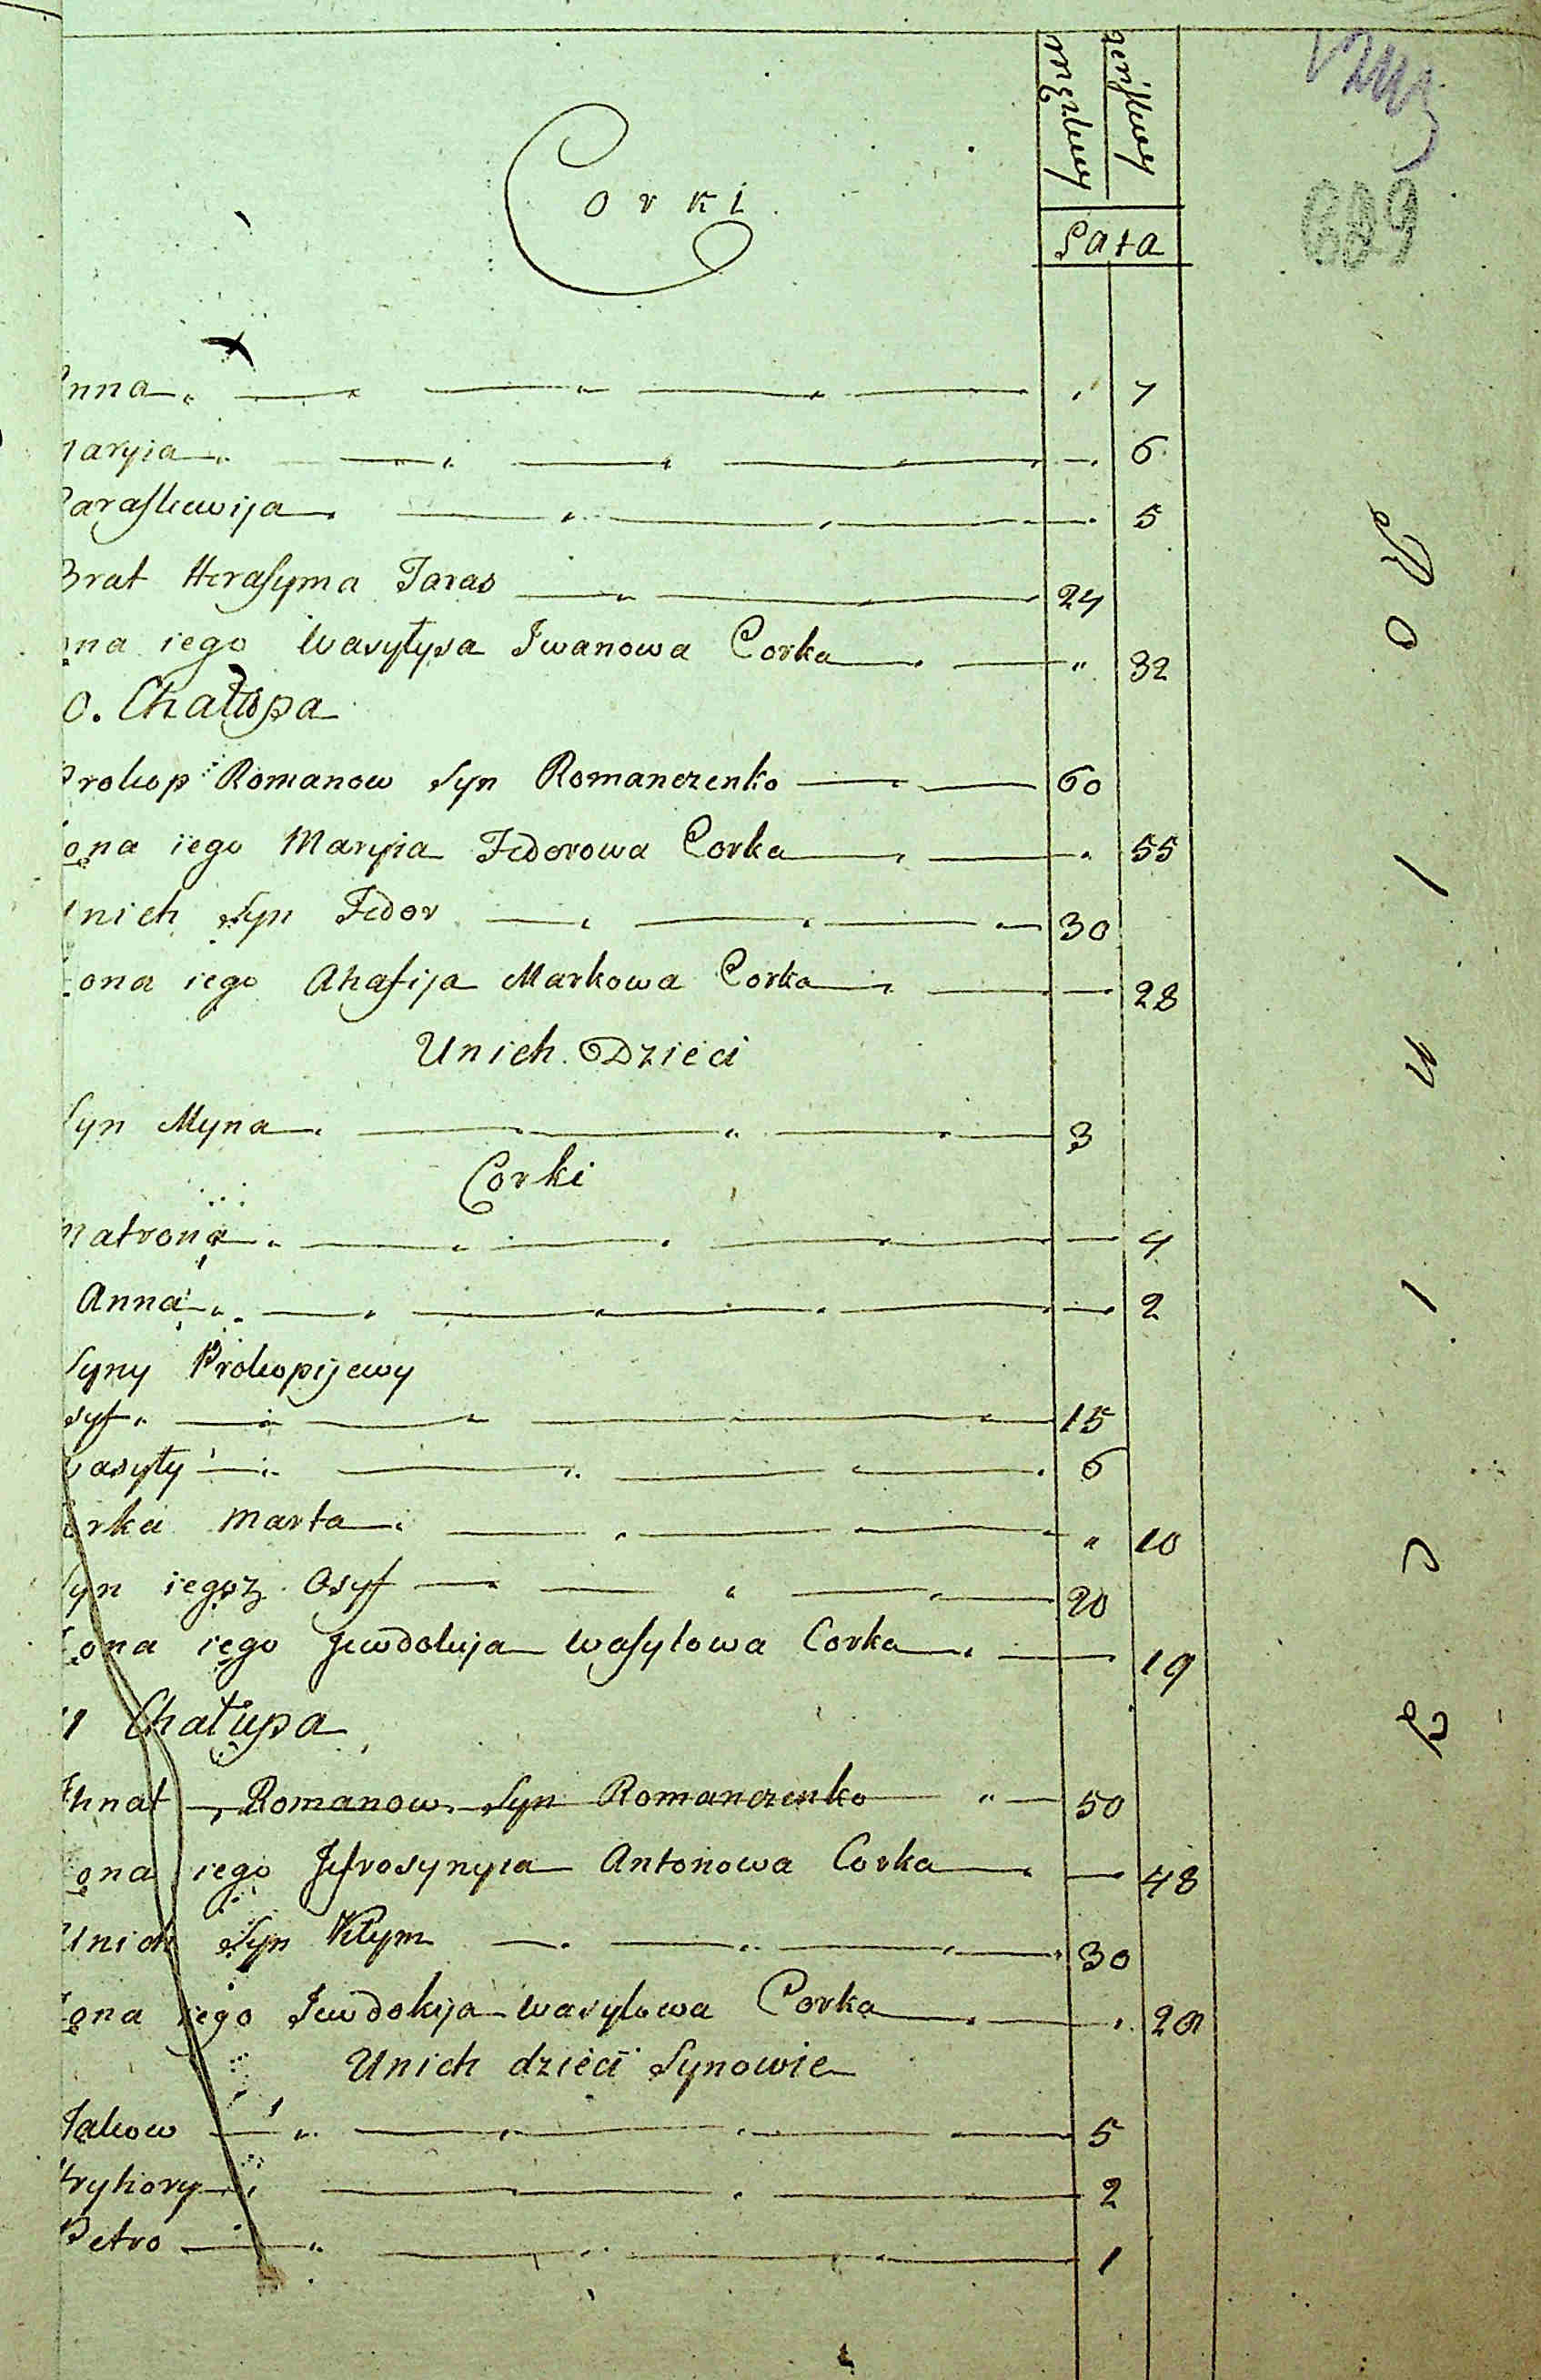 Corki
męzkiey żeńskiey
Lata
Anna 7
Maryia 6
Paraskewija 5
Brat Herasyma Taras 24
ona iego Wasyłysa Iwanowa Corka 32
0. Chałupa
Prokop Romanow Syn Romanczenko 60
ona iego Maryia Fedorowa Corka 55
Unich Syn Fedor 30
Zona iego Ahafija Markowa Corka 28
Unich Dzieci
Syn Myna 3
Corki
Matrona 4
Anna 2
Syny Prokopijewy
syf 15
Wasyły 6
Corka Marta 10
Syn iegoz Osyf 20
Zona iego Jewdokija Wasylowa Corka 19
11 Chałupa
Ihnat Romanow Syn Romanczenko 50
Zona iego Jefrosynyia Antonowa Corka 48
Unich Syn Kłym 30
Zona iego Jewdokija Wasylowa Corka
Unich dzieci Synowie
Jakow 5
Hryhory 2
Petro 1